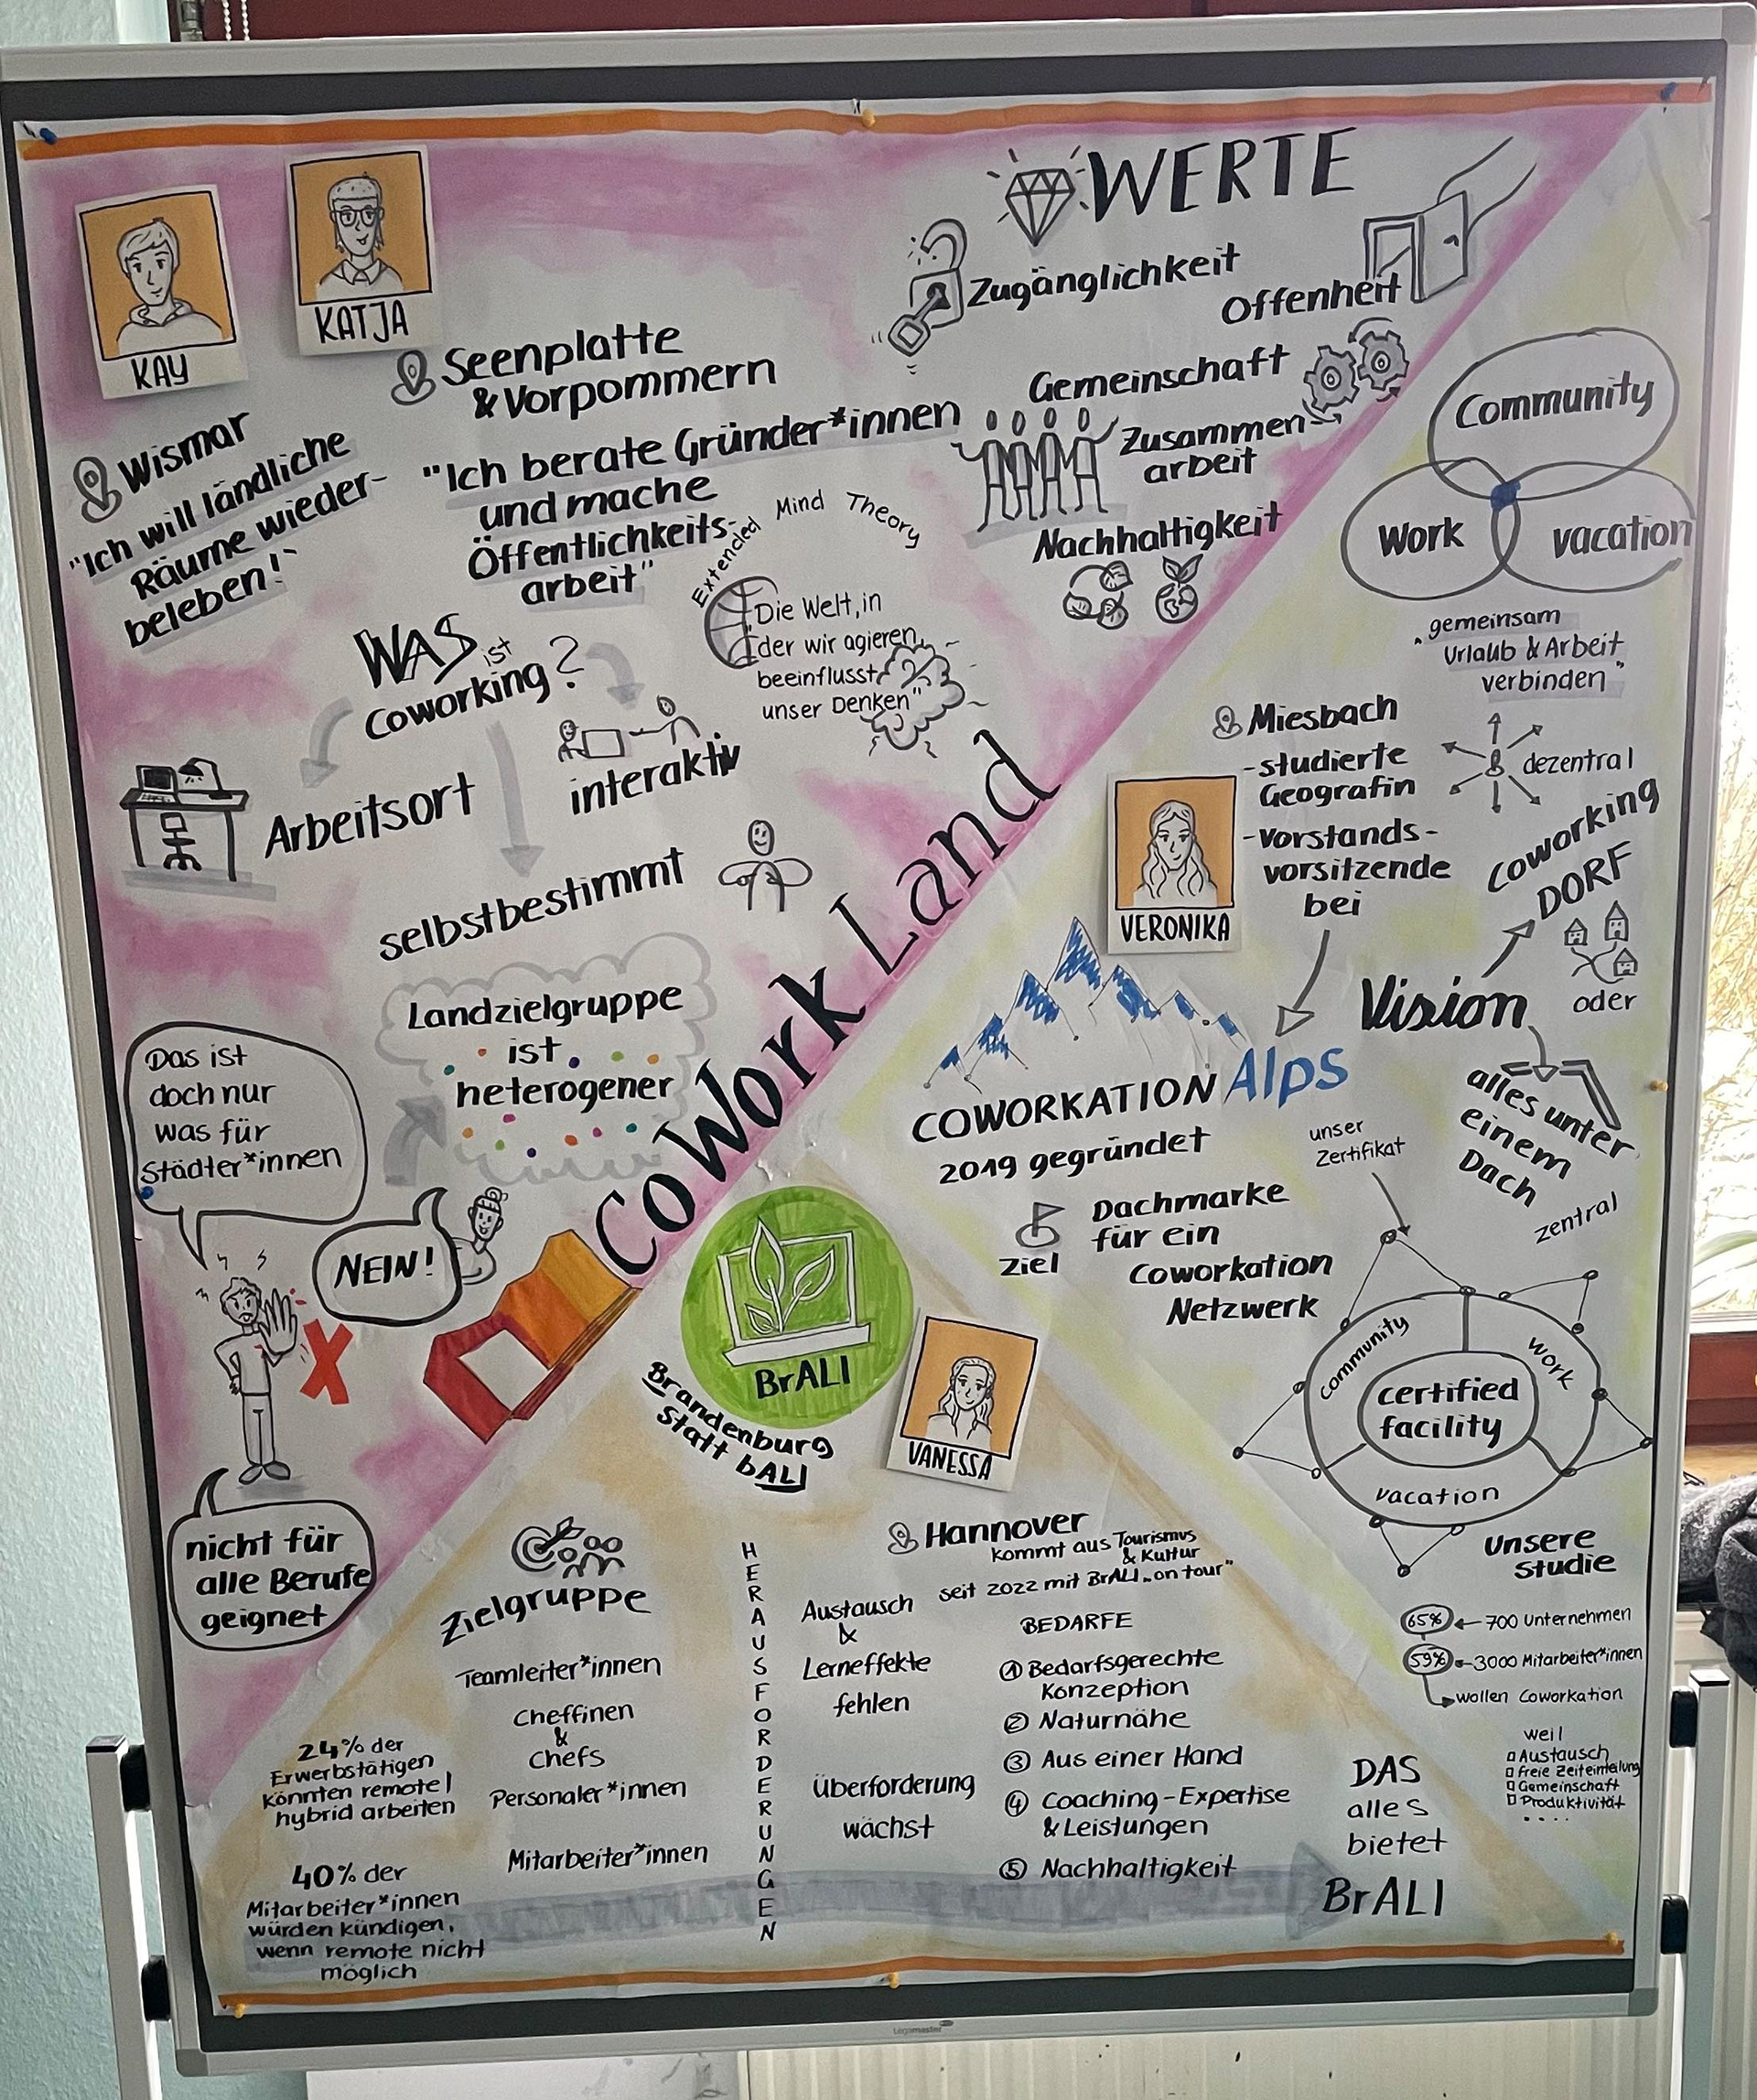 KAY
KATJA
Wismar
"Ich will ländliche
Räume wieder-
beleben!"
Seenplatte
& Vorpommern
"Ich berate Gründer*innen
und mache
Öffentlichkeits-
arbeit"
WERTE
Zugänglichkeit
Offenheit
Gemeinschaft
Zusammen-
arbeit
Nachhaltigkeit
Extended Mind Theory
"Die Welt, in
der wir agieren,
beeinflusst
unser Denken"
WAS ist
Coworking?
Arbeitsort
interaktiv
selbstbestimmt
Landzielgruppe
ist
heterogener
Das ist
doch nur
was für
Städter*innen
NEIN!
nicht für
alle Berufe
geignet
CoWork Land
Community
Work
vacation
"gemeinsam
Urlaub & Arbeit
verbinden"
Miesbach
-studierte
Geografin
-vorstands-
vorsitzende
bei
VERONIKA
dezentral
Coworking
DORF
oder
Vision
alles unter
einem
Dach
zentral
COWORKATION Alps
2019 gegründet
Ziel
Dachmarke
für ein
Coworkation
Netzwerk
unser
Zertifikat
community
work
vacation
certified
facility
Unsere
Studie
65% ← 700 Unternehmen
59% ← 3000 Mitarbeiter*innen
wollen Coworkation
weil
Austausch
freie Zeiteinteilung
Gemeinschaft
Produktivität
....
BrALI
Brandenburg
statt bALI
VANESSA
Hannover
kommt aus Tourismus
& Kultur
seit 2022 mit BrALI „on tour"
Zielgruppe
Teamleiter*innen
Cheffinen
&
Chefs
Personaler*innen
Mitarbeiter*innen
24% der
Erwerbstätigen
könnten remote/
hybrid arbeiten
40% der
Mitarbeiter*innen
würden kündigen,
wenn remote nicht
möglich
HERAUSFORDERUNGEN
Austausch
&
Lerneffekte
fehlen
Überforderung
wächst
BEDARFE
① Bedarfsgerechte
Konzeption
② Naturnähe
③ Aus einer Hand
④ Coaching-Expertise
& Leistungen
⑤ Nachhaltigkeit
DAS
alles
bietet
BrALI
Legamaster